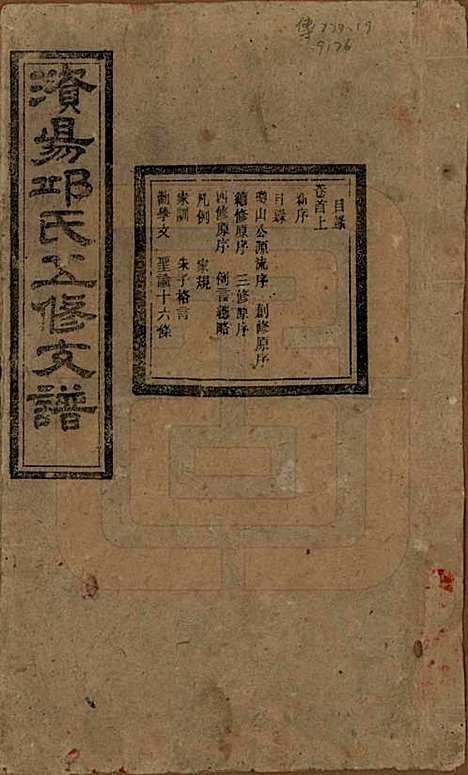 傳 779.19
9176
濱陽邱氏五修支譜
目錄
卷首上
新序
目錄
瓊山公源流序 創修原序
續修原序 三修原序
四修原序 例言總略
凡例 家規
家訓 朱子格言
勸學文 聖諭十六條